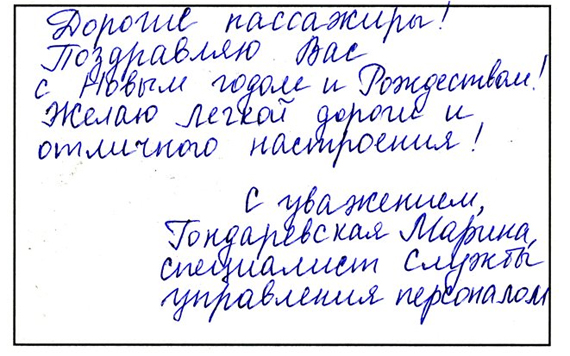 Дорогие пассажиры!
Поздравляю Вас
с Новым годом и Рождеством!
Желаю легкой дороги и
отличного настроения!
С уважением,
Гондаревская Марина,
специалист Службы
управления персоналом